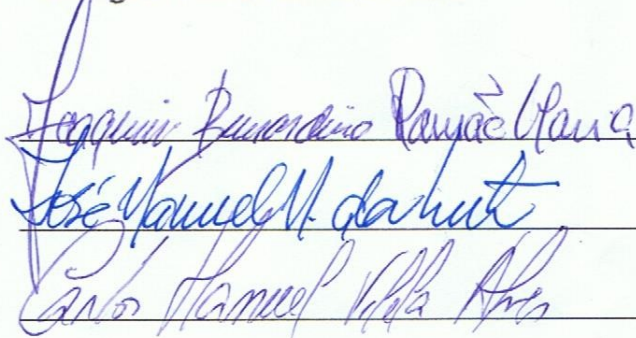 Joaquim Bernardino Ramião Maria
José Manuel M.
Carlos Manuel Alves